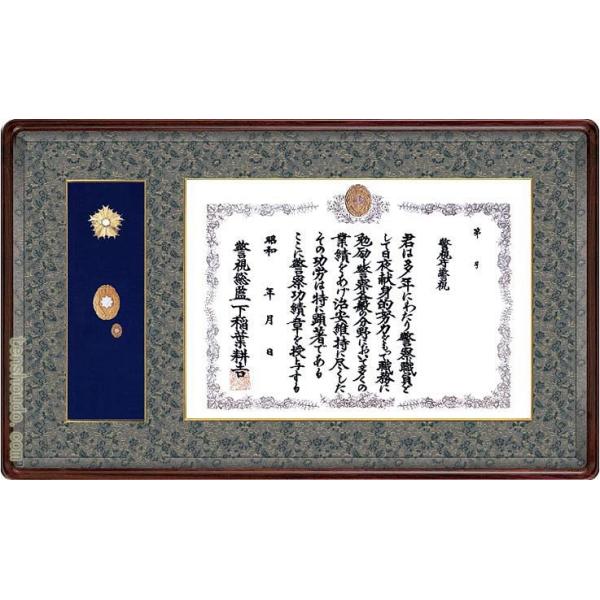 第 号
警視庁警視
君は多年にわたり警察職員と
して日夜献身的努力をもつて職務に
勉励し警察各般の分野において多くの
業績をあげ治安維持に尽くした
その功労は特に顕著である
ここに警察功績章を授与する
昭和 年 月 日
警視総監 下稲葉耕吉
tenshoudo.com